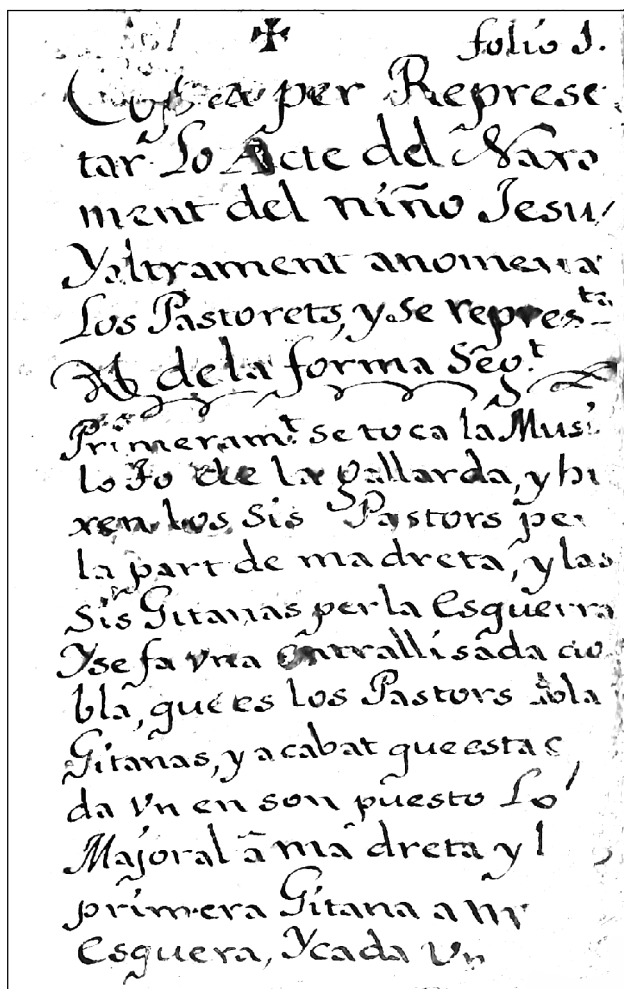 folio 1.
per Represe
tar Lo Acte del Naxe
ment del niño Jesu
Y altrament anomena
Los Pastorets, y se repres.ta
de la forma Seg.t
Primeram.t se toca la Musi
lo So de la gallarda, y hi
xen los Sis Pastors per
la part de ma dreta, y las
Sis Gitanas per la Esquerra
Y se fa vna entrallisada do
bla, que es los Pastors ab la
Gitanas, y acabat que esta c
da vn en son puesto Lo
Majoral a ma dreta y l
primera Gitana a
Esquera, Y cada Vn